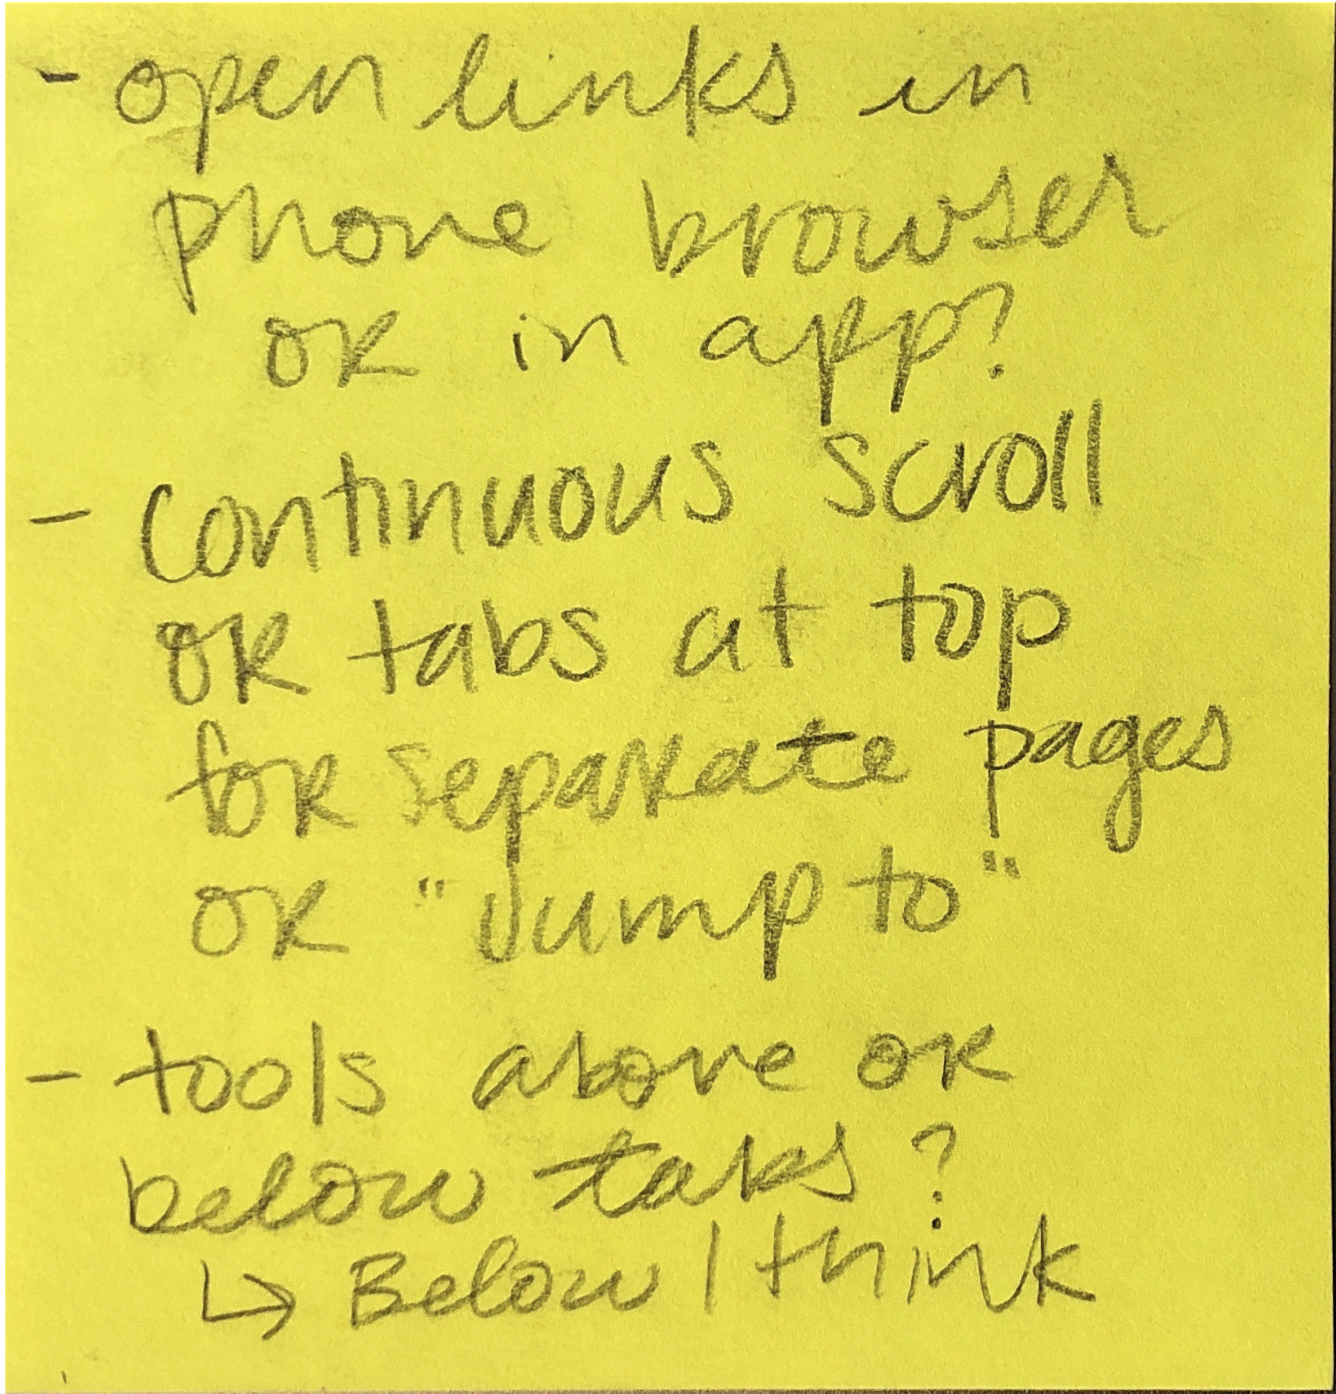 - open links in
phone browser
or in app?
- continuous scroll
or tabs at top
for separate pages
or "Jump to"
- tools above or
below tabs?
↳ Below I think